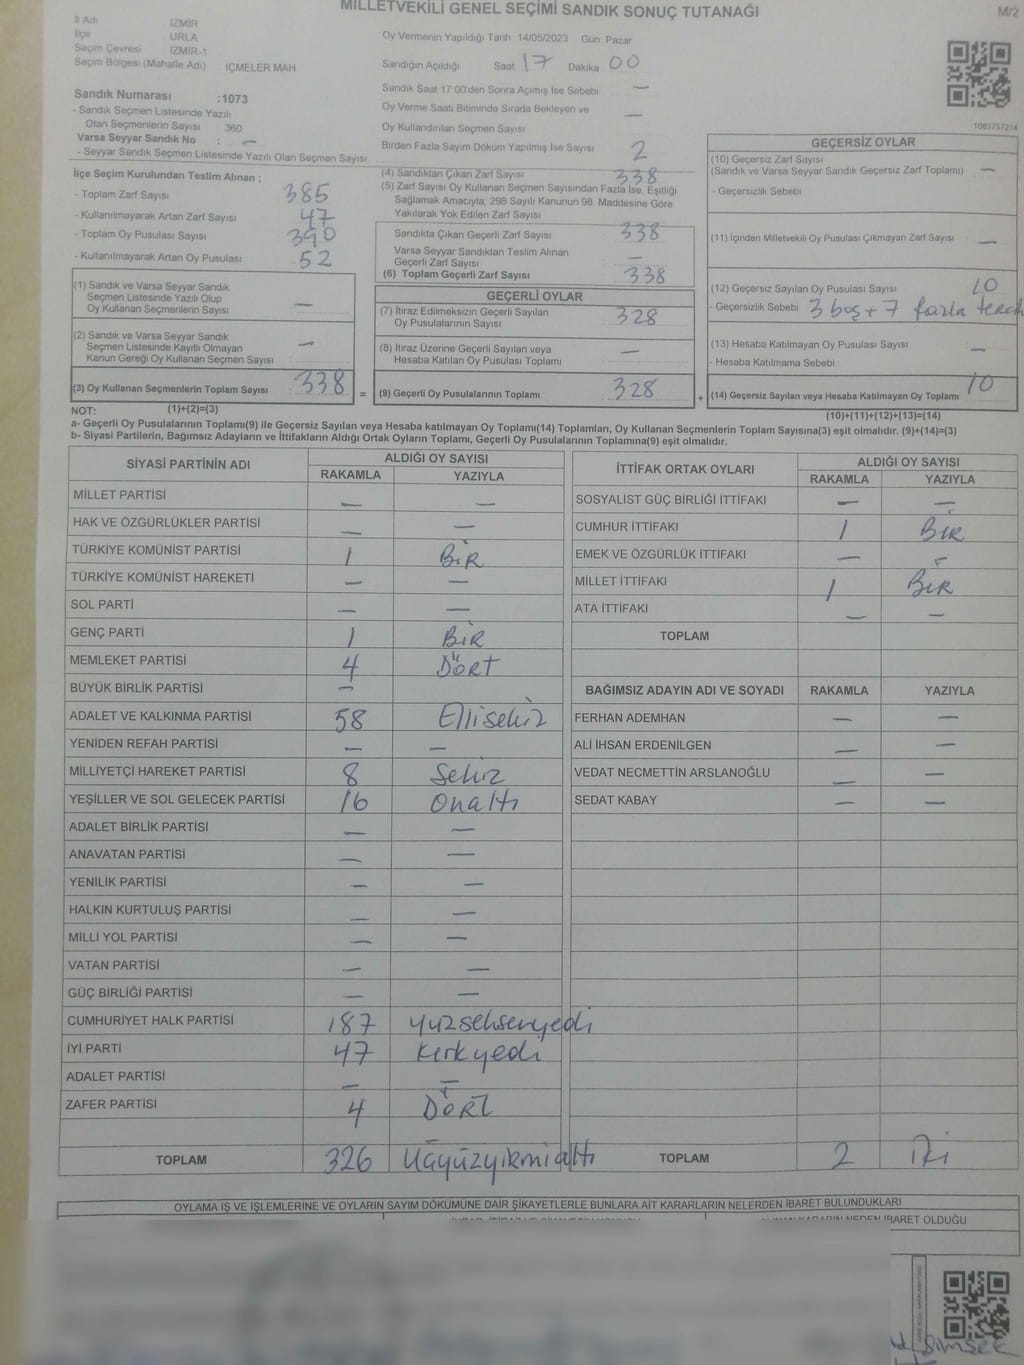 MİLLETVEKİLİ GENEL SEÇİMİ SANDIK SONUÇ TUTANAĞI
M/2
İl Adı İZMİR
İlçe URLA
Seçim Çevresi İZMİR-1
Seçim Bölgesi (Mahalle Adı) İÇMELER MAH
Sandık Numarası :1073
- Sandık Seçmen Listesinde Yazılı
Olan Seçmenlerin Sayısı 360
Varsa Seyyar Sandık No : —
- Seyyar Sandık Seçmen Listesinde Yazılı Olan Seçmen Sayısı
Oy Vermenin Yapıldığı Tarih :14/05/2023 Gün: Pazar
Sandığın Açıldığı Saat 17 Dakika 00
Sandık Saat 17.00'den Sonra Açımış İse Sebebi —
Oy Verme Saati Bitiminde Sırada Bekleyen ve
Oy Kullandırılan Seçmen Sayısı —
Birden Fazla Sayım Döküm Yapılmış İse Sayısı 2
1083757214
İlçe Seçim Kurulundan Teslim Alınan ;
- Toplam Zarf Sayısı 385
- Kullanılmayarak Artan Zarf Sayısı 47
- Toplam Oy Pusulası Sayısı 390
- Kullanılmayarak Artan Oy Pusulası 52
(1) Sandık ve Varsa Seyyar Sandık
Seçmen Listesinde Yazılı Olup
Oy Kullanan Seçmenlerin Sayısı —
(2) Sandık ve Varsa Seyyar Sandık
Seçmen Listesinde Kayıtlı Olmayan
Kanun Gereği Oy Kullanan Seçmen Sayısı —
(3) Oy Kullanan Seçmenlerin Toplam Sayısı 338 =
(4) Sandıktan Çıkan Zarf Sayısı 338
(5) Zarf Sayısı Oy Kullanan Seçmen Sayısından Fazla İse, Eşitliği
Sağlamak Amacıyla, 298 Sayılı Kanunun 98. Maddesine Göre
Yakılarak Yok Edilen Zarf Sayısı
Sandıkta Çıkan Geçerli Zarf Sayısı 338
Varsa Seyyar Sandıktan Teslim Alınan
Geçerli Zarf Sayısı —
(6) Toplam Geçerli Zarf Sayısı 338
GEÇERLİ OYLAR
(7) İtiraz Edilmeksizin Geçerli Sayılan
Oy Pusulalarının Sayısı 328
(8) İtiraz Üzerine Geçerli Sayılan veya
Hesaba Katılan Oy Pusulası Toplamı —
(9) Geçerli Oy Pusulalarının Toplamı 328 +
GEÇERSİZ OYLAR
(10) Geçersiz Zarf Sayısı
(Sandık ve Varsa Seyyar Sandık Geçersiz Zarf Toplamı) —
- Geçersizlik Sebebi
(11) İçinden Milletvekili Oy Pusulası Çıkmayan Zarf Sayısı —
(12) Geçersiz Sayılan Oy Pusulası Sayısı 10
- Geçersizlik Sebebi 3 boş + 7 fazla
(13) Hesaba Katılmayan Oy Pusulası Sayısı —
- Hesaba Katılmama Sebebi
(14) Geçersiz Sayılan veya Hesaba Katılmayan Oy Toplamı 10
NOT: (1)+(2)=(3)
(10)+(11)+(12)+(13)=(14)
a- Geçerli Oy Pusulalarının Toplamı(9) ile Geçersiz Sayılan veya Hesaba katılmayan Oy Toplamı(14) Toplamları, Oy Kullanan Seçmenlerin Toplam Sayısına(3) eşit olmalıdır. (9)+(14)=(3)
b- Siyasi Partilerin, Bağımsız Adayların ve İttifakların Aldığı Ortak Oyların Toplamı, Geçerli Oy Pusulalarının Toplamına(9) eşit olmalıdır.
SİYASİ PARTİNİN ADI ALDIĞI OY SAYISI
RAKAMLA YAZIYLA
MİLLET PARTİSİ — —
HAK VE ÖZGÜRLÜKLER PARTİSİ — —
TÜRKİYE KOMÜNİST PARTİSİ 1 BİR
TÜRKİYE KOMÜNİST HAREKETİ — —
SOL PARTİ — —
GENÇ PARTİ 1 BİR
MEMLEKET PARTİSİ 4 DÖRT
BÜYÜK BİRLİK PARTİSİ —
ADALET VE KALKINMA PARTİSİ 58 Ellisekiz
YENİDEN REFAH PARTİSİ — —
MİLLİYETÇİ HAREKET PARTİSİ 8 Sekiz
YEŞİLLER VE SOL GELECEK PARTİSİ 16 Onaltı
ADALET BİRLİK PARTİSİ — —
ANAVATAN PARTİSİ — —
YENİLİK PARTİSİ — —
HALKIN KURTULUŞ PARTİSİ — —
MİLLİ YOL PARTİSİ — —
VATAN PARTİSİ — —
GÜÇ BİRLİĞİ PARTİSİ — —
CUMHURİYET HALK PARTİSİ 187 yüzseksenyedi
İYİ PARTİ 47 kırkyedi
ADALET PARTİSİ — —
ZAFER PARTİSİ 4 DÖRT
TOPLAM 326 Üçyüzyirmialtı
İTTİFAK ORTAK OYLARI ALDIĞI OY SAYISI
RAKAMLA YAZIYLA
SOSYALİST GÜÇ BİRLİĞİ İTTİFAKI — —
CUMHUR İTTİFAKI 1 BİR
EMEK VE ÖZGÜRLÜK İTTİFAKI — —
MİLLET İTTİFAKI 1 BİR
ATA İTTİFAKI — —
TOPLAM
BAĞIMSIZ ADAYIN ADI VE SOYADI RAKAMLA YAZIYLA
FERHAN ADEMHAN — —
ALİ İHSAN ERDENİLGEN — —
VEDAT NECMETTİN ARSLANOĞLU — —
SEDAT KABAY — —
TOPLAM 2 İki
OYLAMA İŞ VE İŞLEMLERİNE VE OYLARIN SAYIM DÖKÜMÜNE DAİR ŞİKAYETLERLE BUNLARA AİT KARARLARIN NELERDEN İBARET BULUNDUKLARI
NEDEN İBARET OLDUĞU